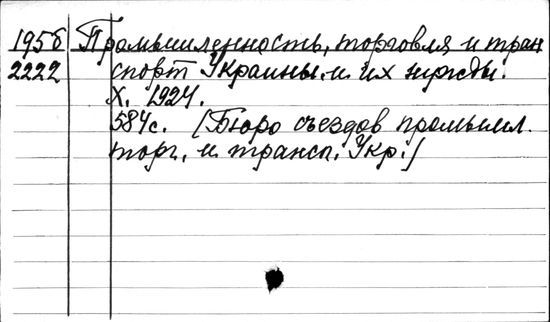 1956 Промышленность, торговля и тран
2222 спорт Украины и их нужды.
Х. 1924.
584с. [Бюро съездов промышл.
торг. и трансп. Укр.]